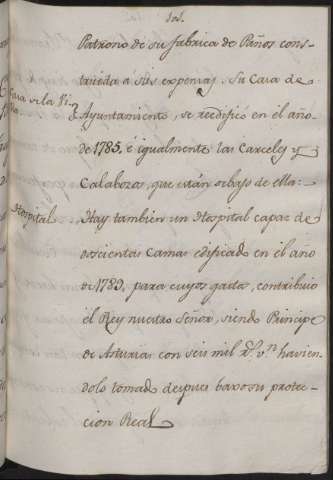 Patrono de su fabrica de Paños cons-
truida a sus expensas. Su Casa de
Casa de la Vi-
Ayuntamiento, se reedificó en el año
de 1785, é igualmente las Carceles y
Calabozos, que están debajo de ella.
Hospital
Hay tambien un Hospital capaz de
doscientas camas edificado en el año
de 1789, para cuyos gastos, contribuio
el Rey nuestro Señor, siendo Principe
de Asturias con seis mil r.^s v.^n havien-
dolo tomado despues baxo su protec-
cion Real